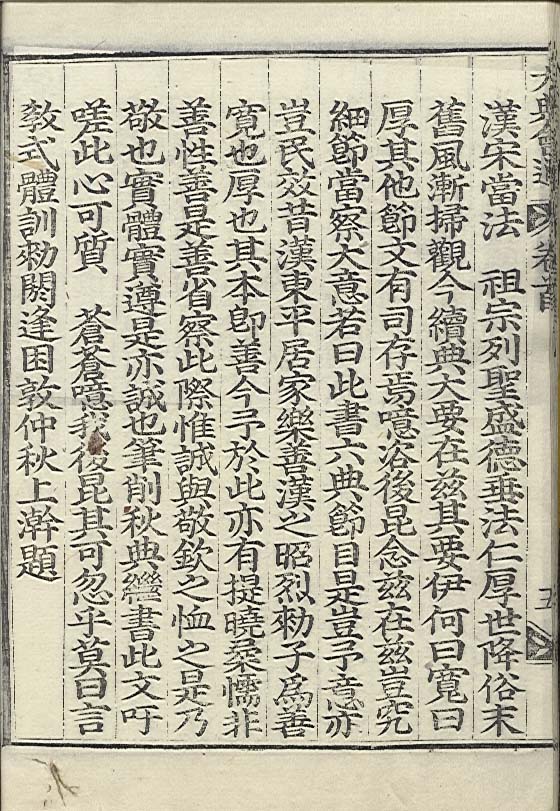 大典會通 卷首 五
漢宋當法　祖宗列聖盛德垂法仁厚世降俗末
舊風漸掃觀今續典大要在兹其要伊何曰寬曰
厚其他節文有司存焉噫咨後昆念兹在兹豈究
細節當察大意若曰此書六典節目是豈予意亦
豈民效昔漢東平居家樂善漢之昭烈勑子爲善
寬也厚也其本卽善今予於此亦有提曉柔懦非
善性善是善省察此際惟誠與敬欽之恤之是乃
敬也實體實遵是亦誠也筆削秋典繼書此文吁
嗟此心可質　蒼蒼噫我後昆其可忽乎莫曰言
敎式體訓勑閼逢困敦仲秋上澣題